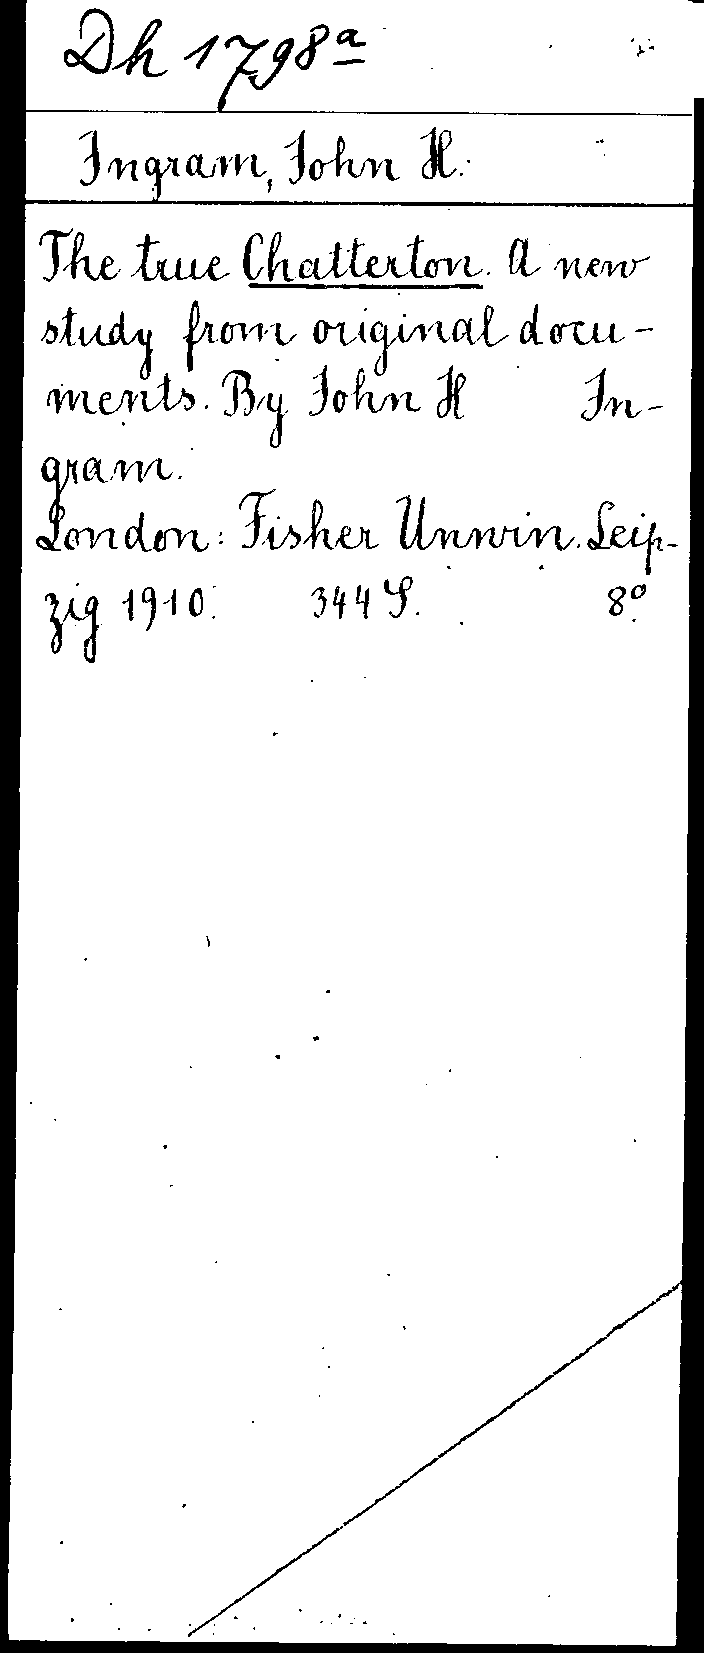 Dh 1798a
Ingram, John H.
The true Chatterton. A new
study from original docu-
ments. By John H In-
gram.
London: Fisher Unwin. Leip-
zig 1910. 344 S. 8°